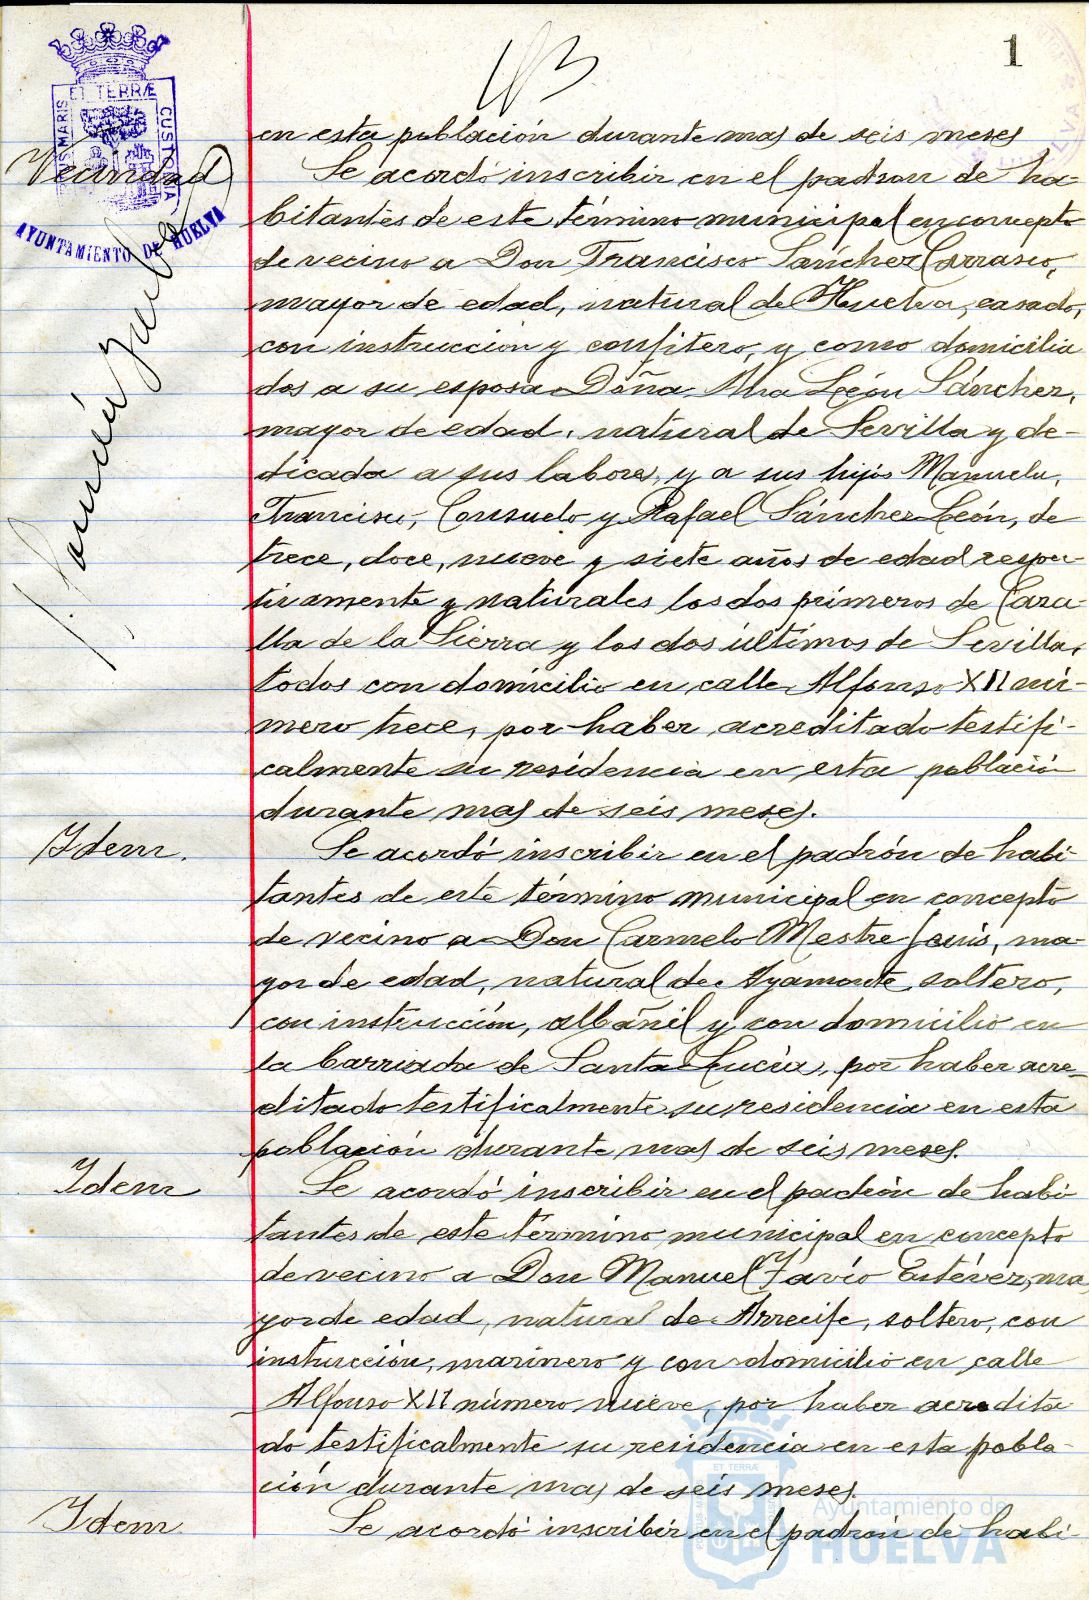 1
en esta población durante mas de seis meses
Vecindad
Se acordó inscribir en el padron de ha-
bitantes de este término municipal en concepto
de vecino a Don Francisco Sánchez Carrasco,
mayor de edad, natural de Huelva, casado,
con instruccion y confitero, y como domicilia
dos a su esposa Doña Ana León Sánchez,
mayor de edad, natural de Sevilla y de-
dicada a sus labores, y a sus hijos Manuela,
Francisco, Consuelo y Rafael Sánchez León, de
trece, doce, nueve y siete años de edad respec-
tivamente y naturales los dos primeros de Caza-
lla de la Sierra y los dos últimos de Sevilla,
todos con domicilio en calle Alfonso XII nú-
mero trece, por haber acreditado testifi-
calmente su residencia en esta población
durante mas de seis meses.
Idem.
Se acordó inscribir en el padrón de habi
tantes de este término municipal en concepto
de vecino a Don Carmelo Mestre, ma-
yor de edad, natural de Ayamonte, soltero,
con instrucción, albañil y con domicilio en
la barriada de Santa Lucía, por haber acre-
ditado testificalmente su residencia en esta
población durante mas de seis meses.
Idem
Se acordó inscribir en el padrón de habi
tantes de este término municipal en concepto
de vecino a Don Manuel Favío Estévez, ma
yor de edad, natural de Arrecife, soltero, con
instrucción, marinero y con domicilio en calle
Alfonso XII número nueve, por haber acredita
do testificalmente su residencia en esta pobla-
ción durante mas de seis meses.
Idem
Se acordó inscribir en el padrón de habi-
ET TERRÆ
MARIS
CUSTODIA
AYUNTAMIENTO DE HUELVA
ET TERRÆ
Ayuntamiento de
HUELVA